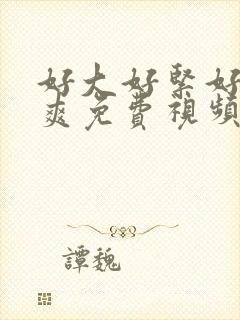 好大好緊好
爽免費視頻
譚魏